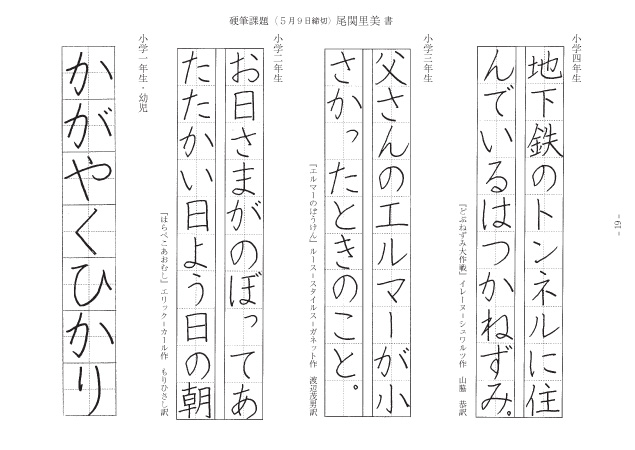 硬筆課題(5月9日締切)尾関里美 書
小学四年生
地下鉄のトンネルに住
んでいるはつかねずみ。
『どぶねずみ大作戦』イレーヌ=シュワルツ作 山脇 恭訳
小学三年生
父さんのエルマーが小
さかったときのこと。
『エルマーのぼうけん』ルース=スタイルス=ガネット作 渡辺茂男訳
小学二年生
お日さまがのぼってあ
たたかい日よう日の朝
『はらぺこあおむし』エリック=カール作 もりひさし訳
小学一年生・幼児
かがやくひかり
- 19 -